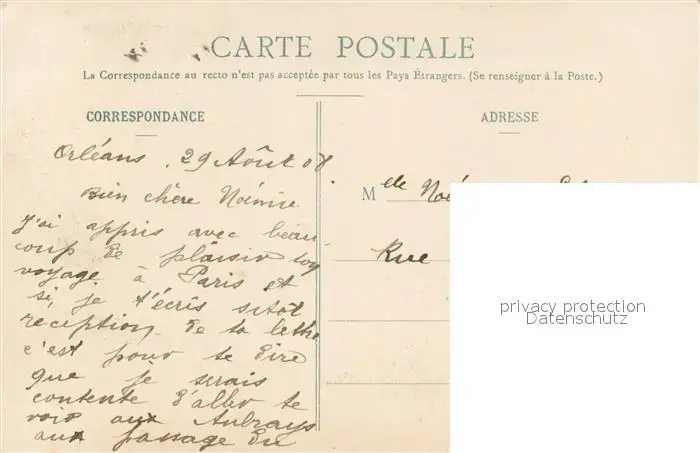 CARTE POSTALE
La Correspondance au recto n'est pas acceptée par tous les Pays Étrangers. (Se renseigner à la Poste.)
CORRESPONDANCE
ADRESSE
Orléans, 29 Août 08
Bien chère Noémie
J'ai appris avec beau-
coup de plaisir ton
voyage à Paris et
si je t'écris sitôt
réception de ta lettre
c'est pour te dire
que je serais
contente d'aller te
voir aux Aubrays
aux passage du
Melle Noé
Rue
privacy protection
Datenschutz